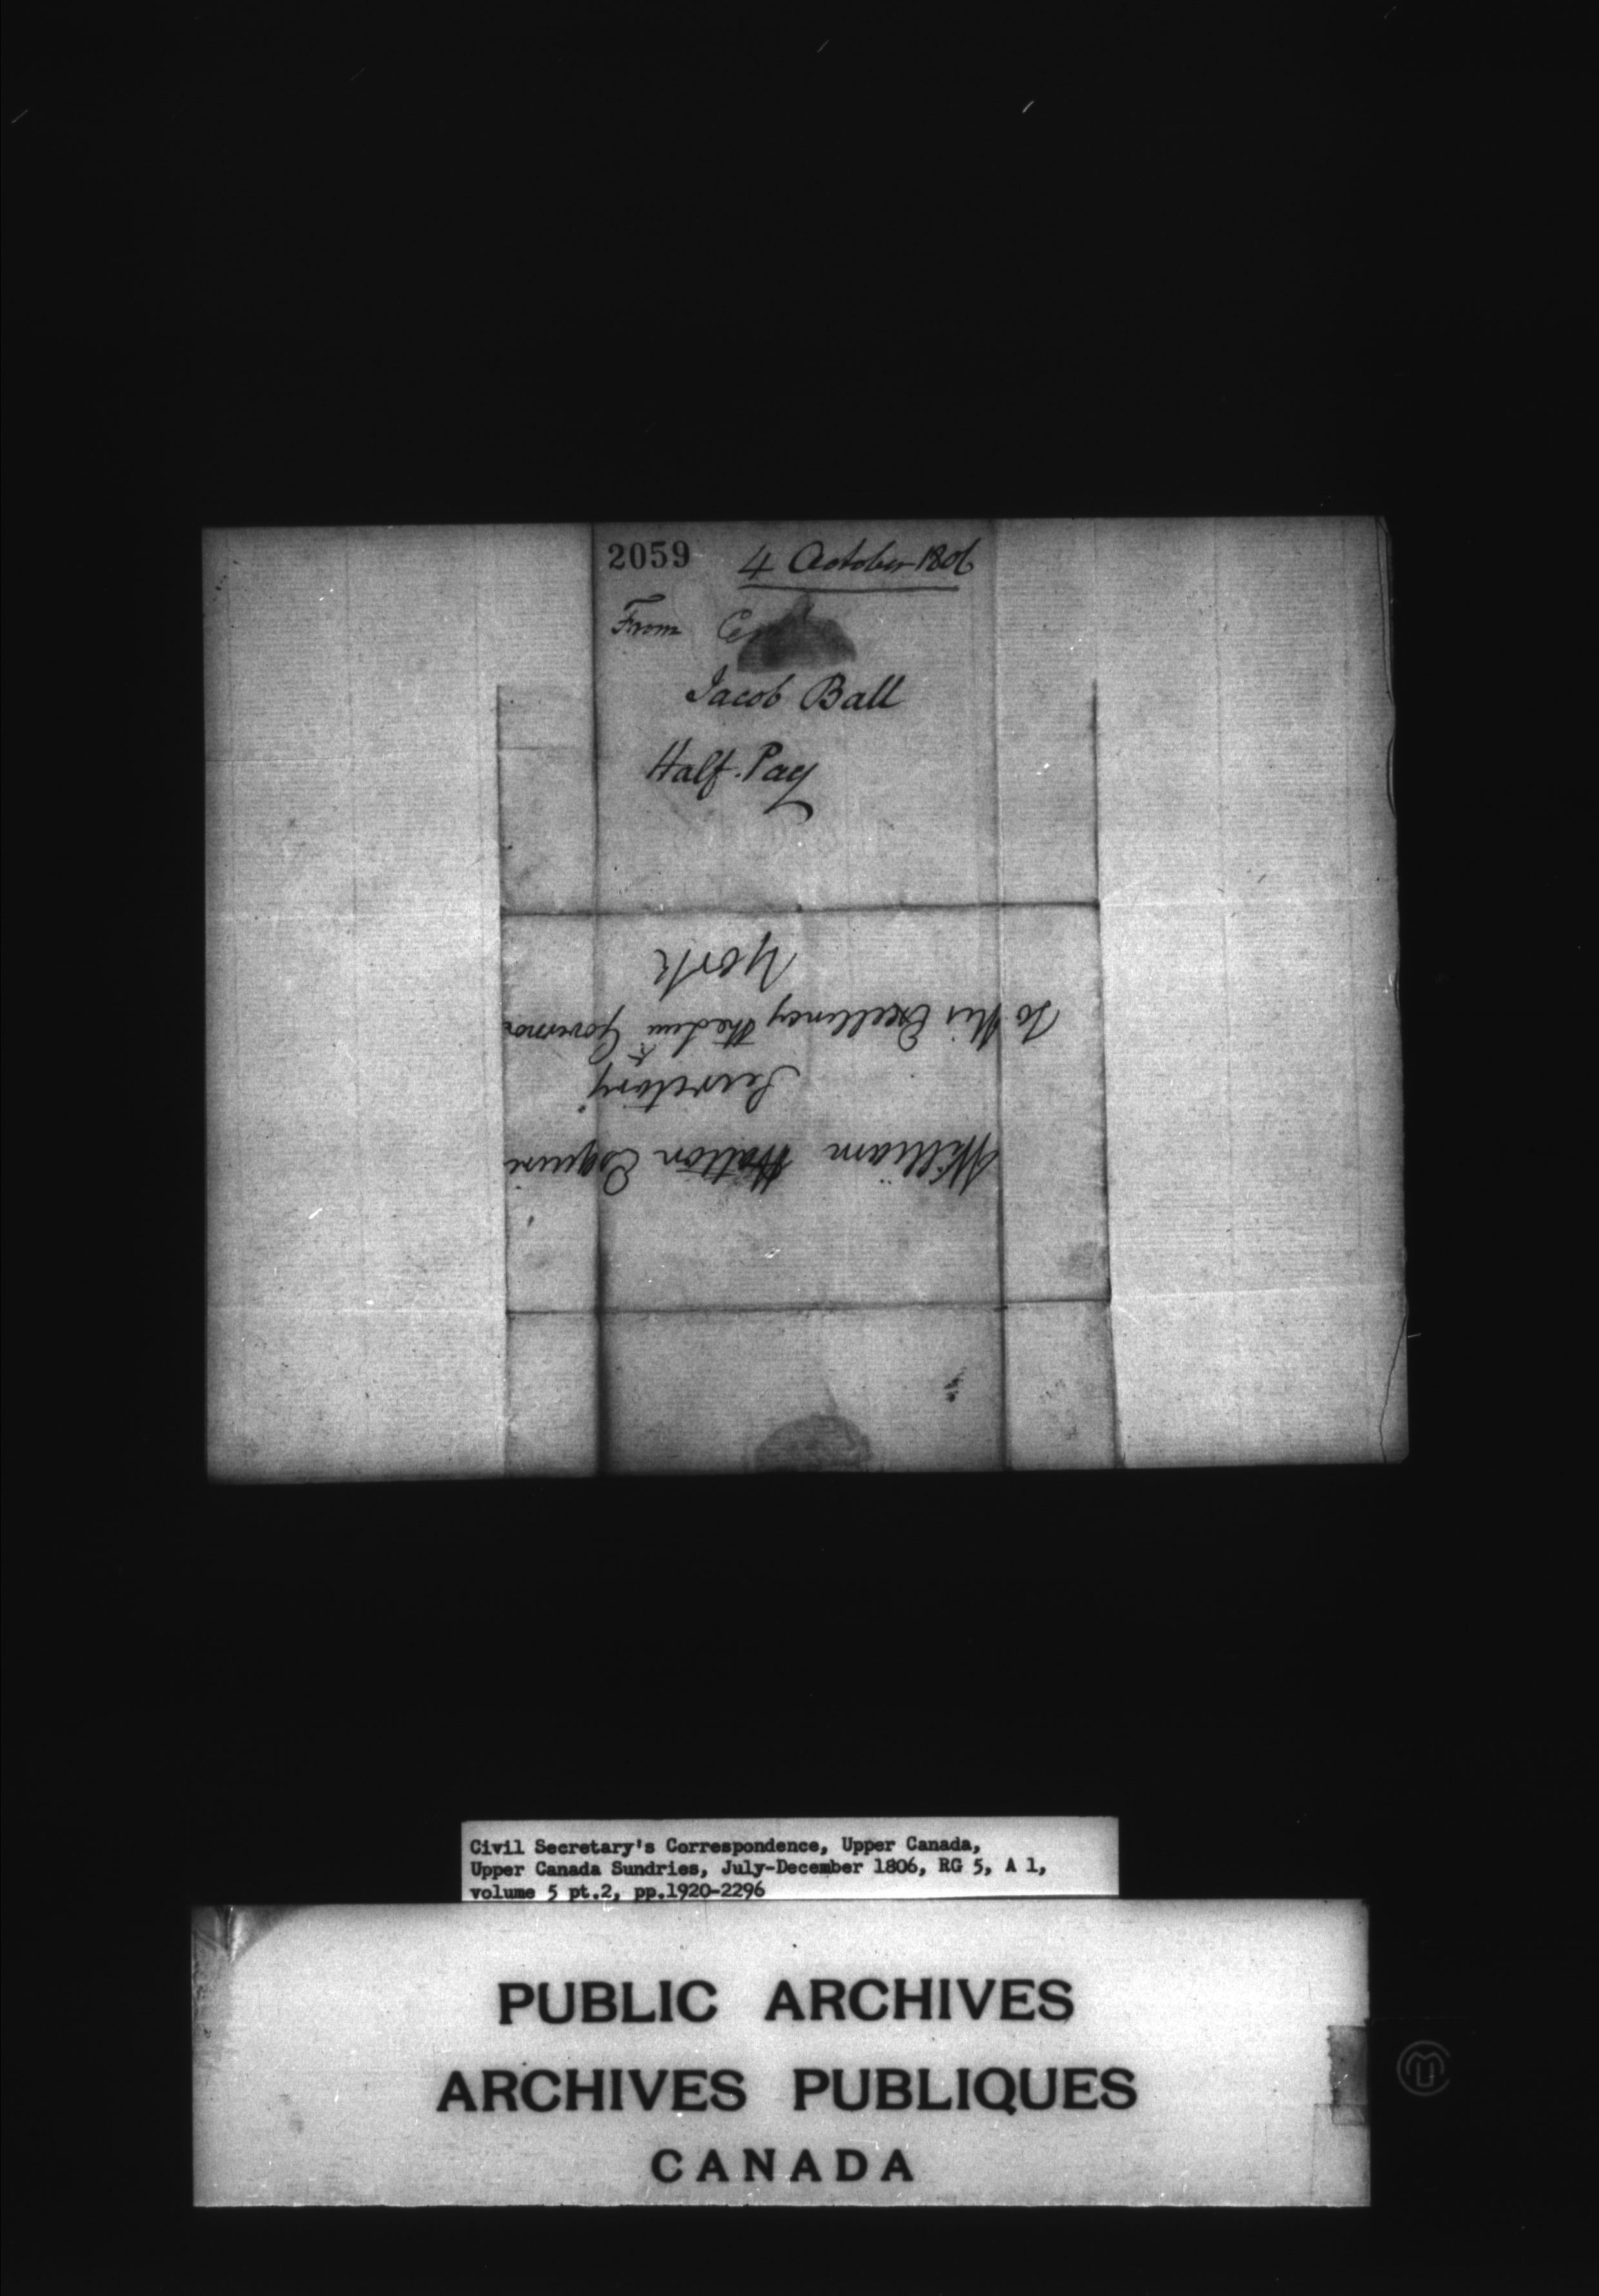 2059 4 October 1806
From
Jacob Ball
Half-Pay
William Halton Esquire
Secretary
To His Excellency the Lieu.t Governor
York
Civil Secretary's Correspondence, Upper Canada,
Upper Canada Sundries, July-December 1806, RG 5, A 1,
volume 5 pt.2, pp.1920-2296
PUBLIC ARCHIVES
ARCHIVES PUBLIQUES
CANADA